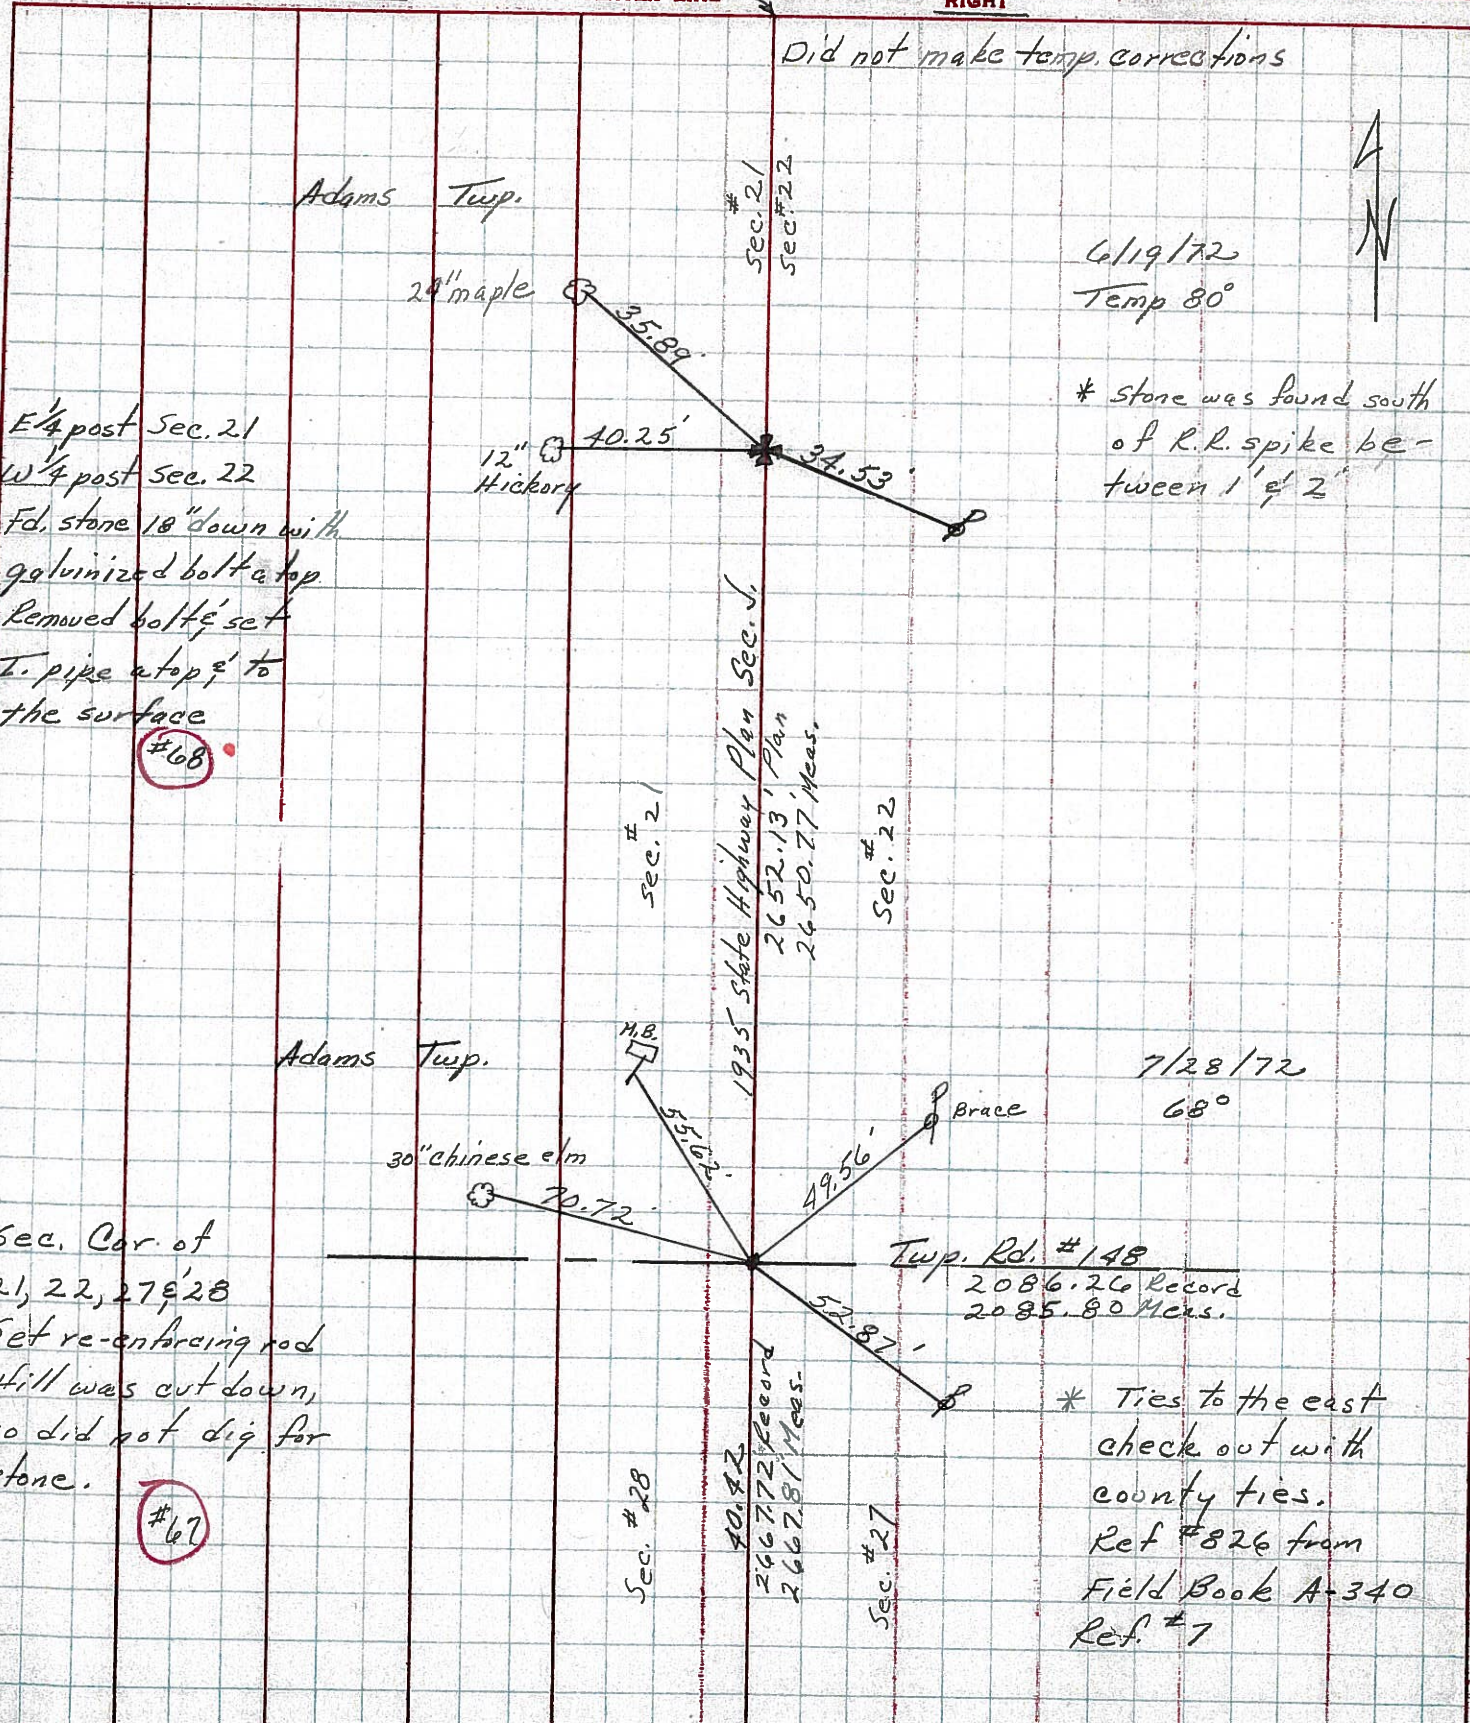 RIGHT
Did not make temp. corrections
Sec. #21
Sec. #22
N
Adams Twp.
6/19/72
Temp 80°
maple
35.89'
12" Hickory
40.25'
34.53'
* Stone was found south
of R.R. spike be-
tween 1' & 2'
E 1/4 post Sec. 21
W 1/4 post Sec. 22
Fd. stone 18" down with
galvinized bolt a top.
Removed bolt & set
I. pipe atop & to
the surface
#68
1935 State Highway Plan Sec. J.
2652.13' Plan
2650.77' Meas.
Sec. #21
Sec. #22
Adams Twp.
M.B.
7/28/72
68°
Brace
55.62'
49.56'
30" chinese elm
70.72'
Twp. Rd. #148
2086.26 Record
2085.80 Meas.
52.87'
Sec. Cor. of
21, 22, 27 & 28
Set re-enforcing rod
Hill was cut down,
so did not dig for
stone.
#67
Sec. #28
40.42
2667.72 Record
2667.81 Meas.
Sec. #27
* Ties to the east
check out with
county ties.
Ref #826 from
Field Book A-340
Ref. #7